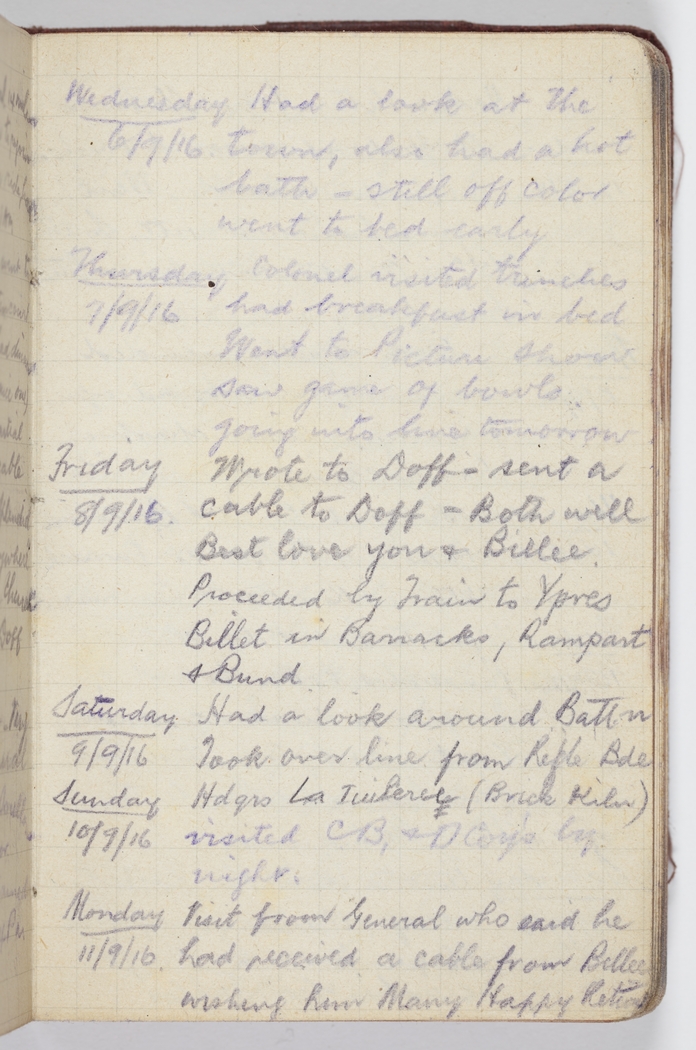 Wednesday Had a look at the
6/9/16 town, also had a hot
bath - still off color
went to bed early
Thursday Colonel visited trenches
7/9/16 had breakfast in bed
Went to Picture Show
saw game of bowls.
going into line tomorrow
Friday Wrote to Doff - sent a
8/9/16. cable to Doff - Both well
Best love you & Billee.
Proceeded by Train to Ypres
Billet in Barracks, Rampart
& Bund
Saturday Had a look around Battn
9/9/16 Took over line from Rifle Bde
Sunday Hdqrs La Tuilerie (Brick Kiln)
10/9/16 visited C B, & D Coys by
night.
Monday Visit from General who said he
11/9/16 had received a cable from Billee
wishing him Many Happy Returns